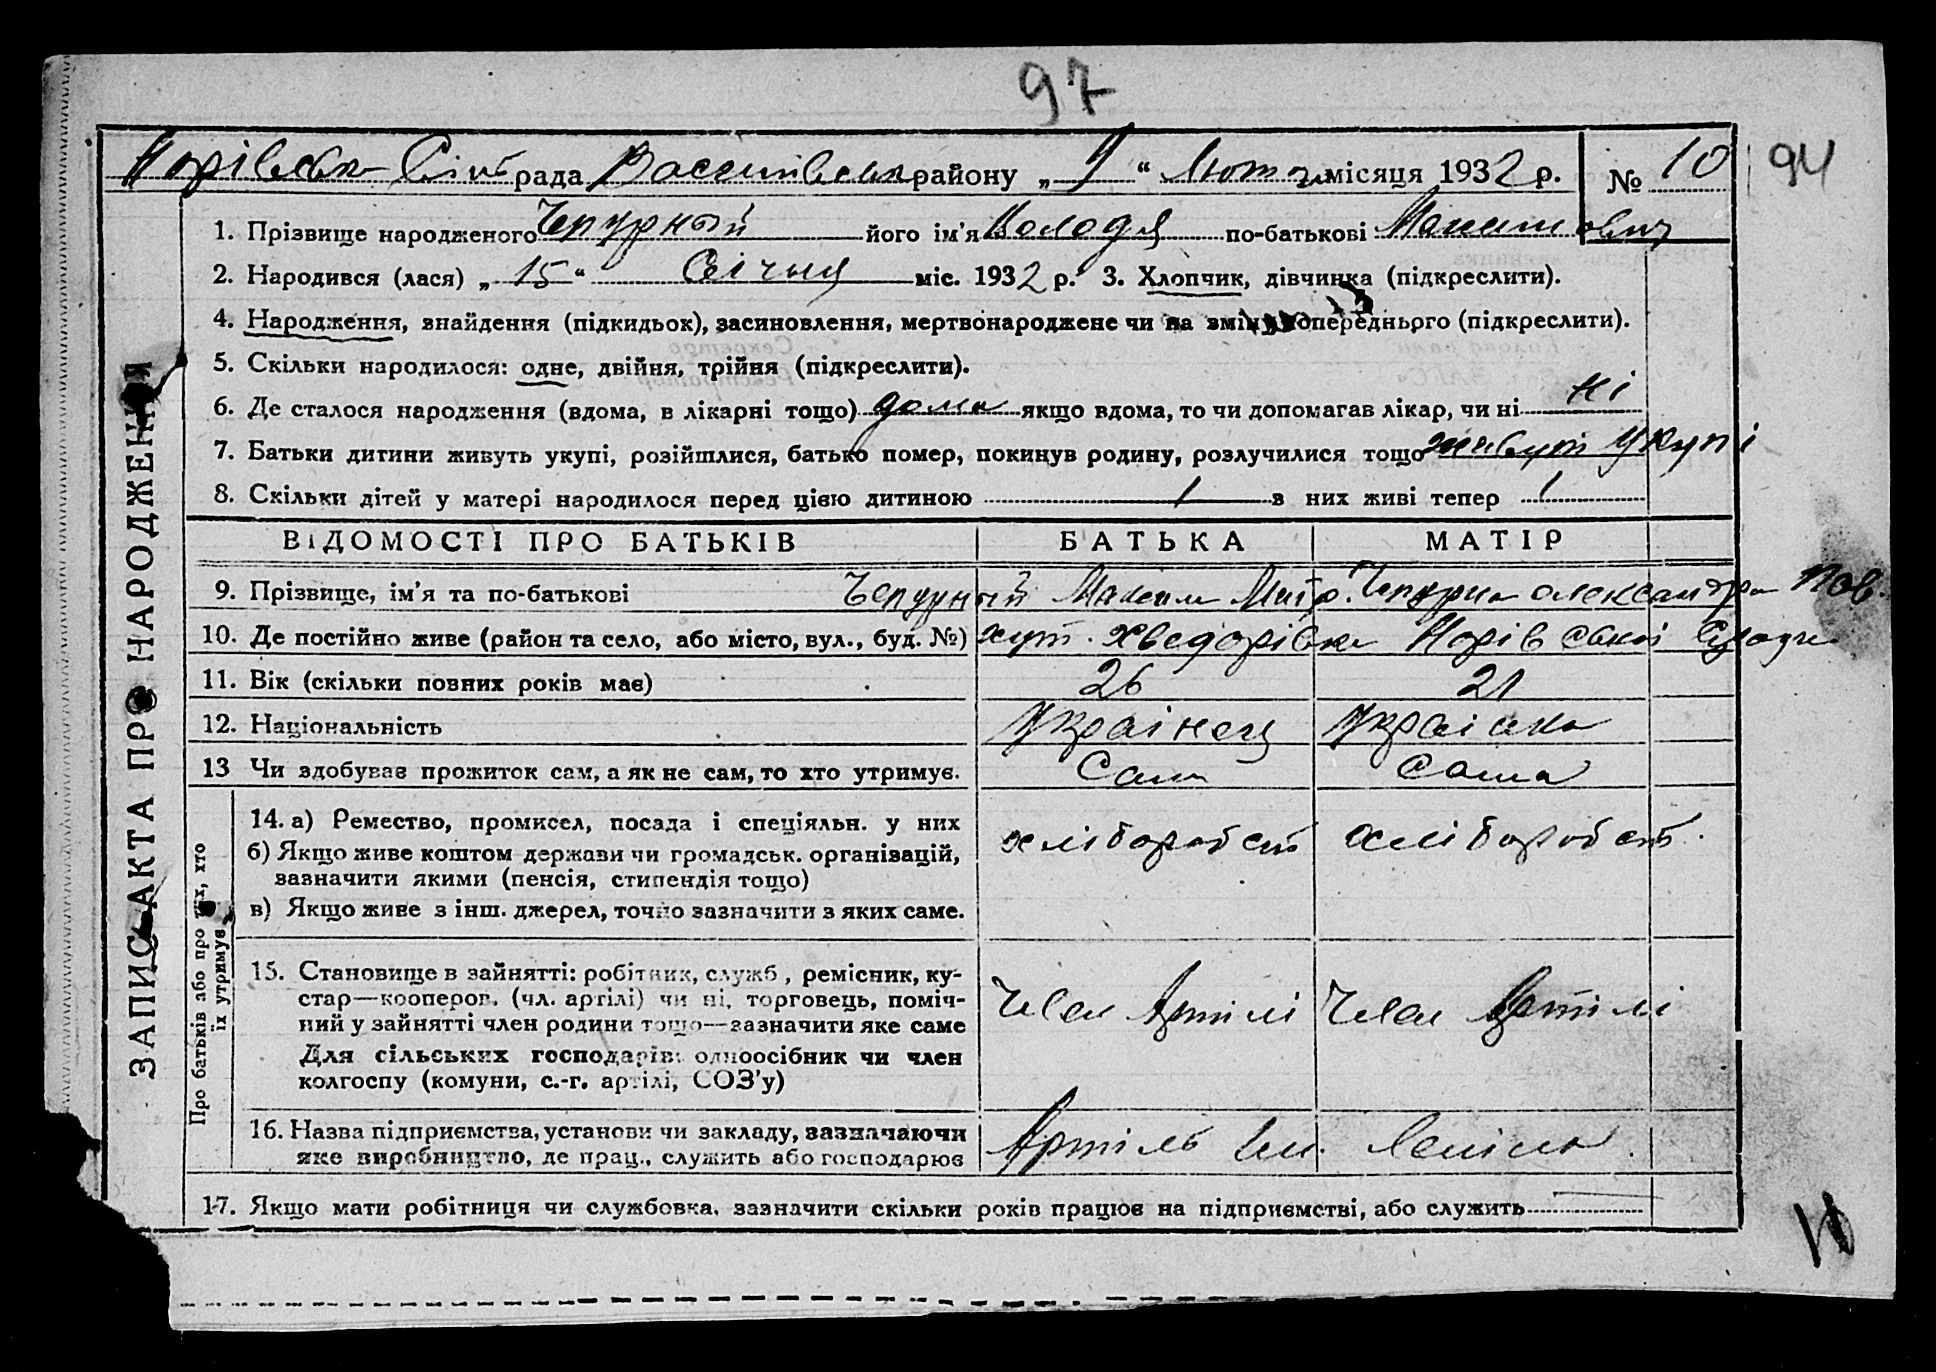 97
Норівська Сільрада району „ 9 “ Лютого місяця 1932 р. № 10 94
1. Прізвище народженого Чепурный його ім'я Володя по-батькові Максимович
2. Народився (лася) „ 15 “ Січня міс. 1932 р. 3. Хлопчик, дівчинка (підкреслити).
4. Народження, знайдення (підкидьок), засиновлення, мертвонароджене чи на зміну попереднього (підкреслити).
5. Скільки народилося: одне, двійня, трійня (підкреслити).
6. Де сталося народження (вдома, в лікарні тощо) дома якщо вдома, то чи допомагав лікар, чи ні ні
7. Батьки дитини живуть укупі, розійшлися, батько помер, покинув родину, розлучилися тощо живут укупі
8. Скільки дітей у матері народилося перед цією дитиною 1 з них живі тепер 1
ВІДОМОСТІ ПРО БАТЬКІВ БАТЬКА МАТІР
9. Прізвище, ім'я та по-батькові Чепурный Максим Митр. Чепурна Олександра Пав.
10. Де постійно живе (район та село, або місто, вул., буд. №) хут. Хведорівка Норівської С/ради
11. Вік (скільки повних років має) 26 21
12. Національність Українец Українка
13 Чи здобував прожиток сам, а як не сам, то хто утримує. Сам Сама
14. а) Ремество, промисел, посада і спеціяльн. у них хлібороб ст хлібороб ст.
б) Якщо живе коштом держави чи громадськ. організацій,
зазначити якими (пенсія, стипендія тощо)
в) Якщо живе з інш. джерел, точно зазначити з яких саме.
15. Становище в зайнятті: робітник, служб., ремісник, ку-
стар—кооперов. (чл. артілі) чи ні, торговець, поміч-
ний у зайнятті член родини тощо—зазначити яке саме Член Артілі Член Артілі
Для сільських господарів: одноосібник чи член
колгоспу (комуни, с.-г. артілі, СОЗ'у)
16. Назва підприємства, установи чи закладу, зазначаючи
яке виробництво, де прац., служить або господарює Артіль Ім. Леніна.
17. Якщо мати робітниця чи службовка, зазначити скільки років працює на підприємстві, або служить
ЗАПИС АКТА ПРО НАРОДЖЕННЯ
Про батьків або про тих, хто
їх утримує